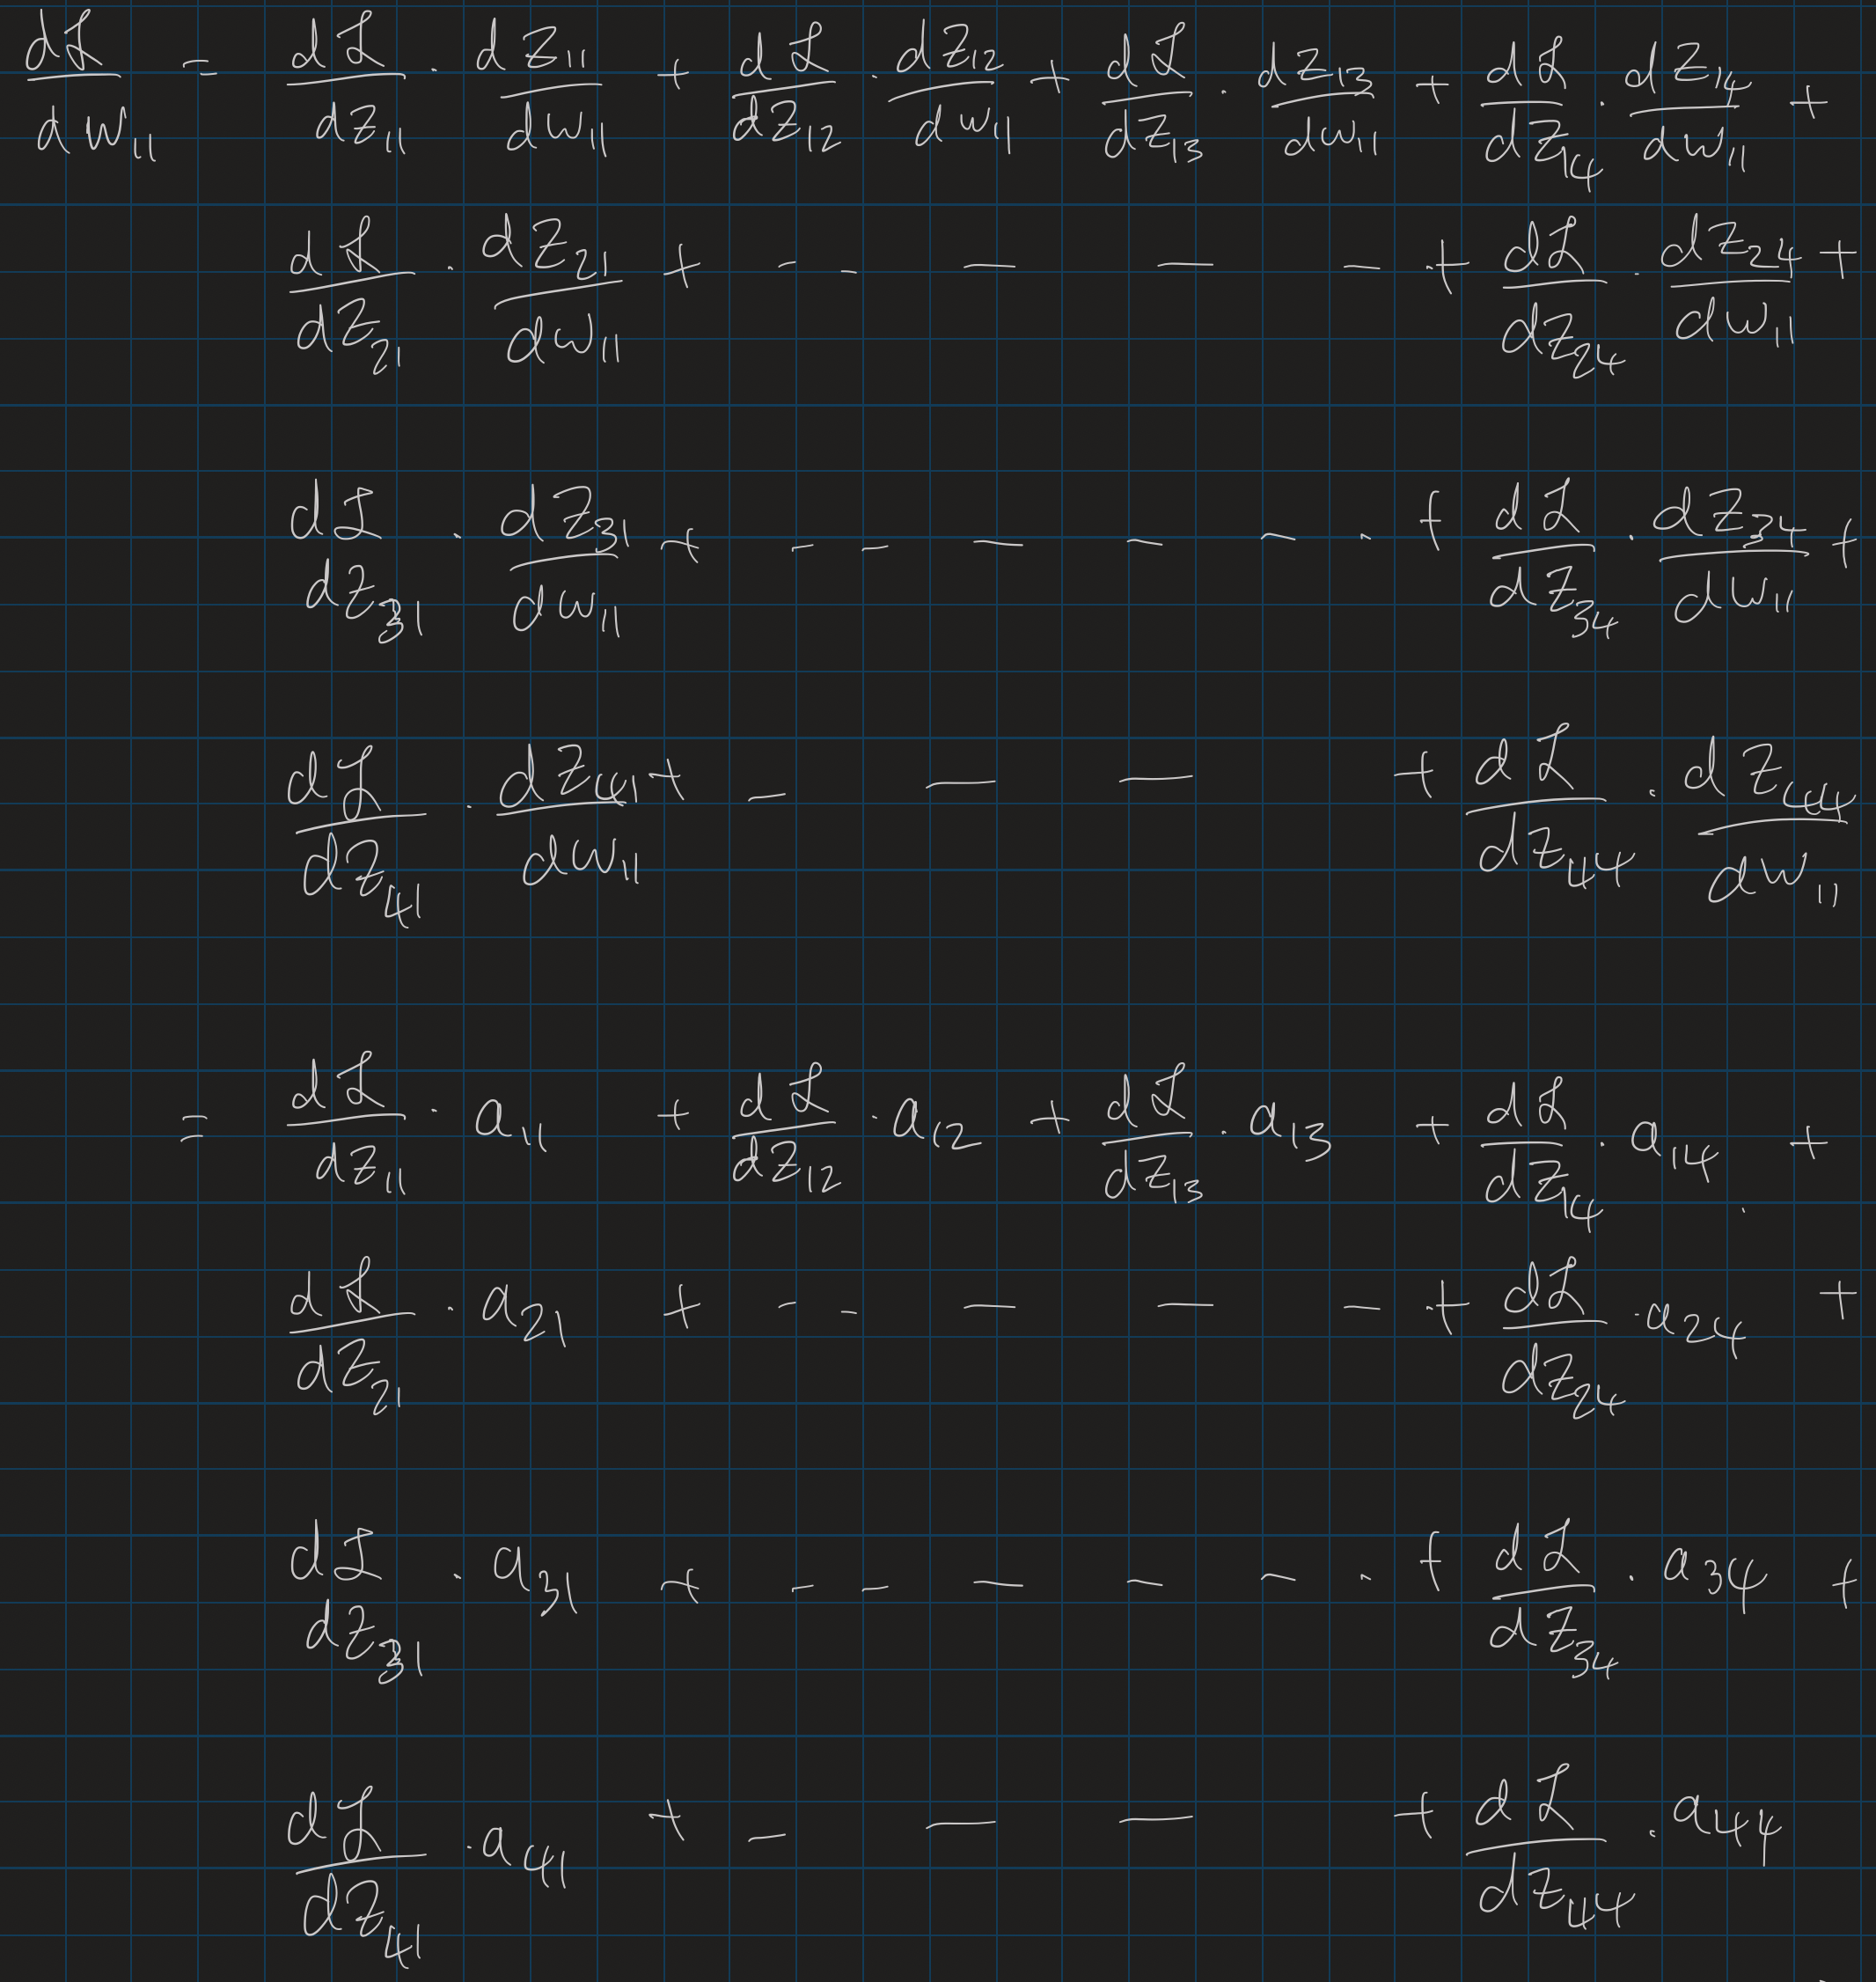 dℒ/dw₁₁ = dℒ/dz₁₁ · dz₁₁/dw₁₁ + dℒ/dz₁₂ · dz₁₂/dw₁₁ + dℒ/dz₁₃ · dz₁₃/dw₁₁ + dℒ/dz₁₄ · dz₁₄/dw₁₁ +
dℒ/dz₂₁ · dz₂₁/dw₁₁ + - - - - - + dℒ/dz₂₄ · dz₂₄/dw₁₁ +
dℒ/dz₃₁ · dz₃₁/dw₁₁ + - - - - - - + dℒ/dz₃₄ · dz₃₄/dw₁₁ +
dℒ/dz₄₁ · dz₄₁/dw₁₁ + - - - + dℒ/dz₄₄ · dz₄₄/dw₁₁
= dℒ/dz₁₁ · a₁₁ + dℒ/dz₁₂ · a₁₂ + dℒ/dz₁₃ · a₁₃ + dℒ/dz₁₄ · a₁₄ +
dℒ/dz₂₁ · a₂₁ + - - - - - + dℒ/dz₂₄ · a₂₄ +
dℒ/dz₃₁ · a₃₁ + - - - - - - + dℒ/dz₃₄ · a₃₄ +
dℒ/dz₄₁ · a₄₁ + - - - + dℒ/dz₄₄ · a₄₄